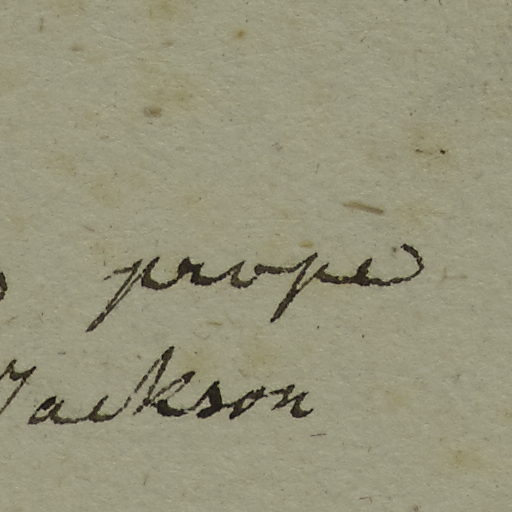 prope
Jackson